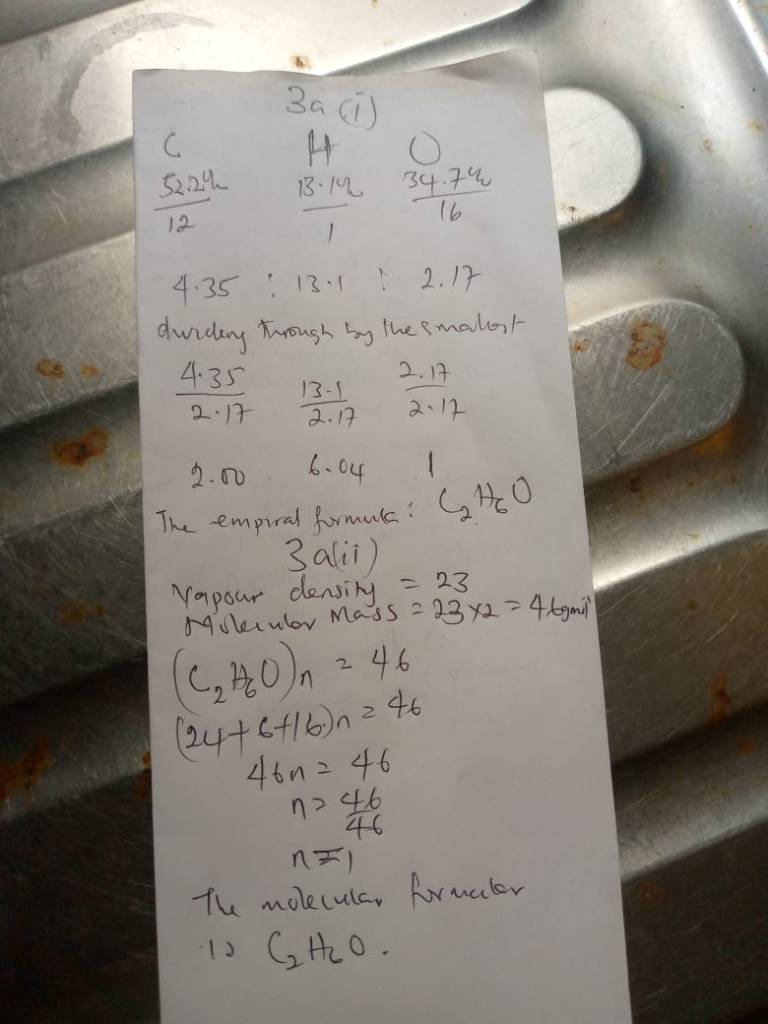 3a (i)
C H O
52.2% 13.1% 34.7%
12 1 16
4.35 : 13.1 : 2.17
dividing through by the smallest
4.35 13.1 2.17
2.17 2.17 2.17
2.00 6.04 1
The empiral formula : C₂H₆O
3a(ii)
Vapour density = 23
Molecular Mass = 23 x 2 = 46gmol⁻¹
(C₂H₆O)n = 46
(24+6+16)n = 46
46n = 46
n = 46
46
n = 1
The molecular formular
is C₂H₆O.